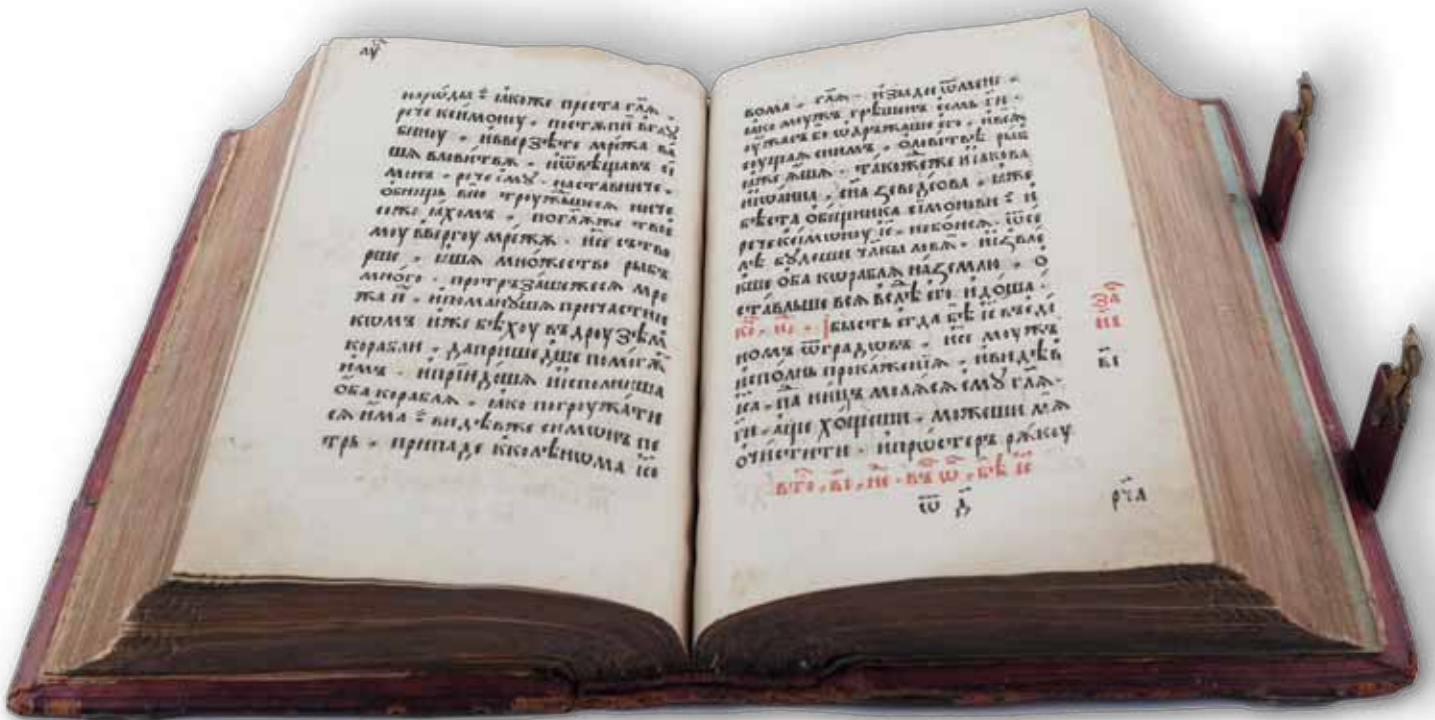 лꙋ
нарѡды ⁘ ꙗкоже преста гл҃ѧ •
рече ксимоноу • поѣстꙋпи въглꙋ
биноу • и҆въвръзѣте мрѣжа ва
шѧ вловитвѫ • и҆ѿвѣщавъ си
монъ • рече є҆мꙋ • наставниче •
обнощь всю троуждьшесѧ ниче
соже ꙗхомъ • поглꙋ же твоє
моу въвергоу мрѣжѫ • и҆се сътво
рше • ꙗшѧ множество рыбъ
много • протръзашежесѧ мрѣ
жа и҆ • и҆поманꙋшѧ причастни
кѡмъ иже бѣхоу въдроуꙁѣм
корабли • дапришедше помогꙋ
имъ • и҆приидошѧ и҆исполнишѧ
оба кораблѧ • ꙗко погроужати
сѧ има ⁘ видѣвже симѡнъ пе
тръ • припаде кколѣнома і҆со
вома • гл҃ѧ • изыди ѿмене •
ꙗко моужъ грѣшенъ єсмь ги •
оужасъ бо ѡдръжаше єго • и҆всѧ
соущаѧ снимъ • ѡловитвѣ рыб
ꙗже ꙗшѧ • такожеже и҆ꙗкова
и҆ѡанна • сн҃а зеведеова • ꙗже
бѣста обещника симонови ⁘ и҆
рече ксимѡноу і҆с • небоисѧ • ѿсе
лѣ бꙋдеши чл҃ки ловѧ • и҆извле
кше оба кѡраблѧ наземлю • ѻ
ставльше всѧ вслѣ єго идоша •
ко҃ • не҃ • бысть єгда бѣ і҆с въеди
номъ ѿградѡвъ • и҆се моужъ
исполнь прокаженїѧ • и҆видѣв
і҆са • па ницъ молѧсѧ ємꙋ гл҃ѧ •
ги • аще хощеши • можеши мѧ
очистити • и҆простеръ рѫкоу
вто • в҃і • не • въ ѡ • бѣ і҆с
ѿ д҃
в҃і
рч҃а